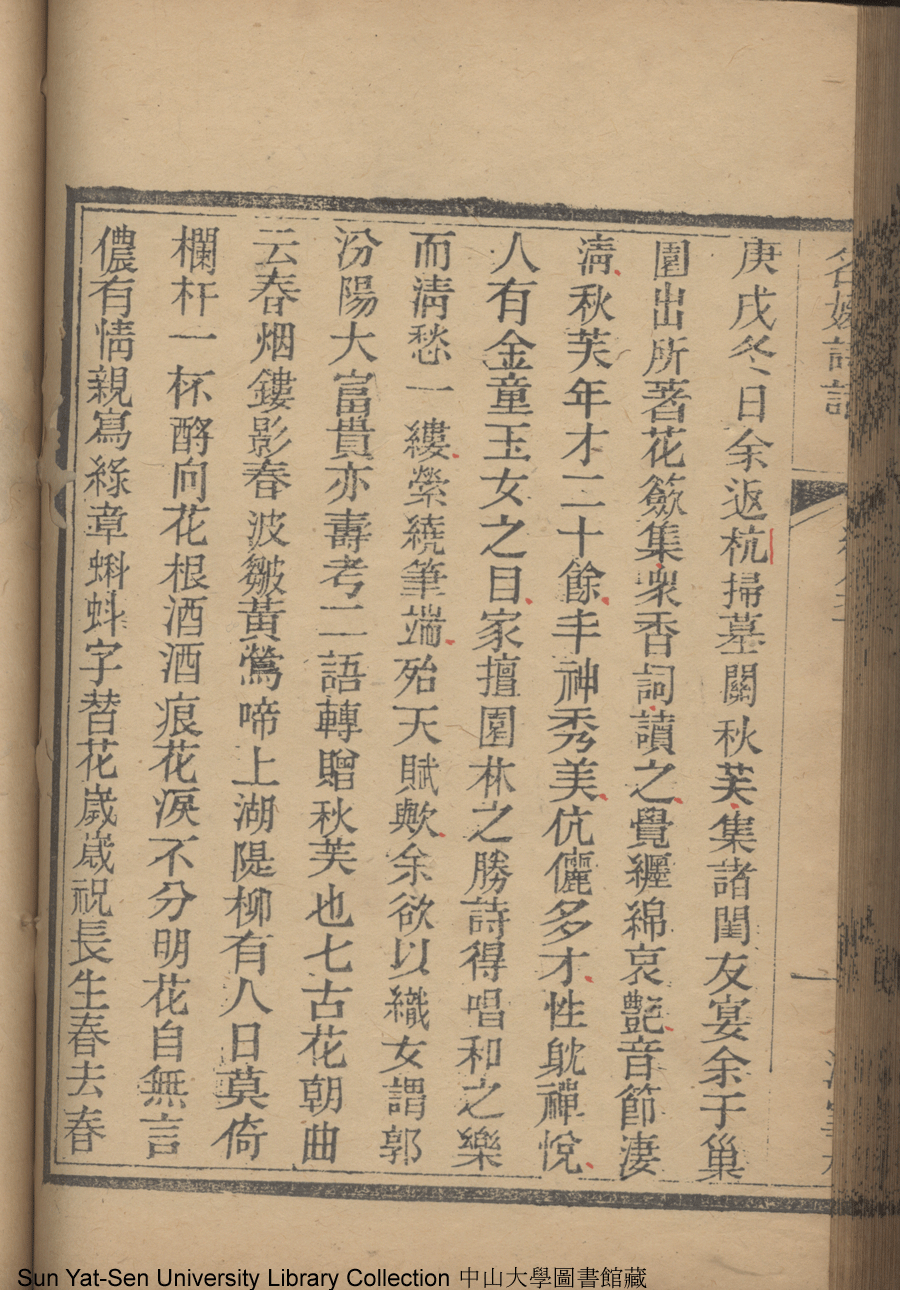 名媛詩話
庚戌冬日余返杭掃墓關秋芙集諸閨友宴余于巢
園出所著花簃集衆香詞讀之覺纒綿哀艷音節淒
淸秋芙年才二十餘丰神秀美伉儷多才性躭禪悅
人有金童玉女之目家擅園林之勝詩得唱和之樂
而淸愁一縷縈繞筆端殆天賦歟余欲以織女謂郭
汾陽大富貴亦壽考二語轉贈秋芙也七古花朝曲
云春烟鏤影春波皺黃鶯啼上湖隄柳有人日莫倚
欄杆一杯酹向花根酒酒痕花淚不分明花自無言
儂有情親寫綠章蝌蚪字替花歲歲祝長生春去春
Sun Yat-Sen University Library Collection 中山大學圖書館藏